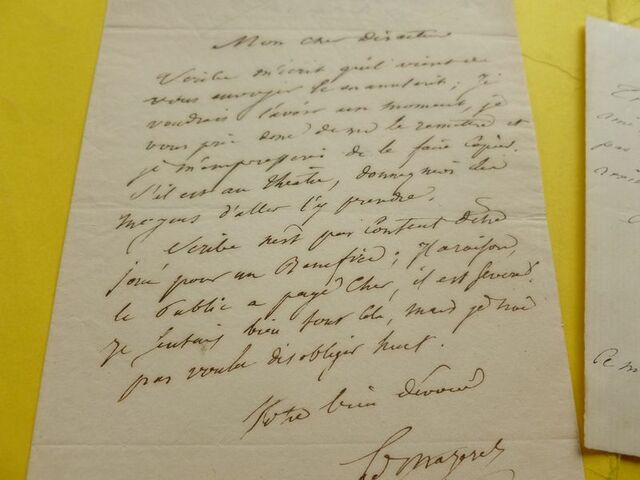 Mon cher Directeur
Scribe m'écrit qu'il vient de
vous envoyer le manuscrit; Je
voudrais l'avoir un moment, je
vous prie donc de me le remettre et
je m'empresserai de le faire copier.
S'il est au théâtre, donnez moi les
moyens d'aller l'y prendre.
Scribe n'est pas content d'être
joué pour un Bénéfice; Il a raison,
le Public a payé cher, il est sévère.
Je sentais bien tout cela, mais je n'ai
pas voulu désobliger
Votre bien dévoué
Ed Mazeres